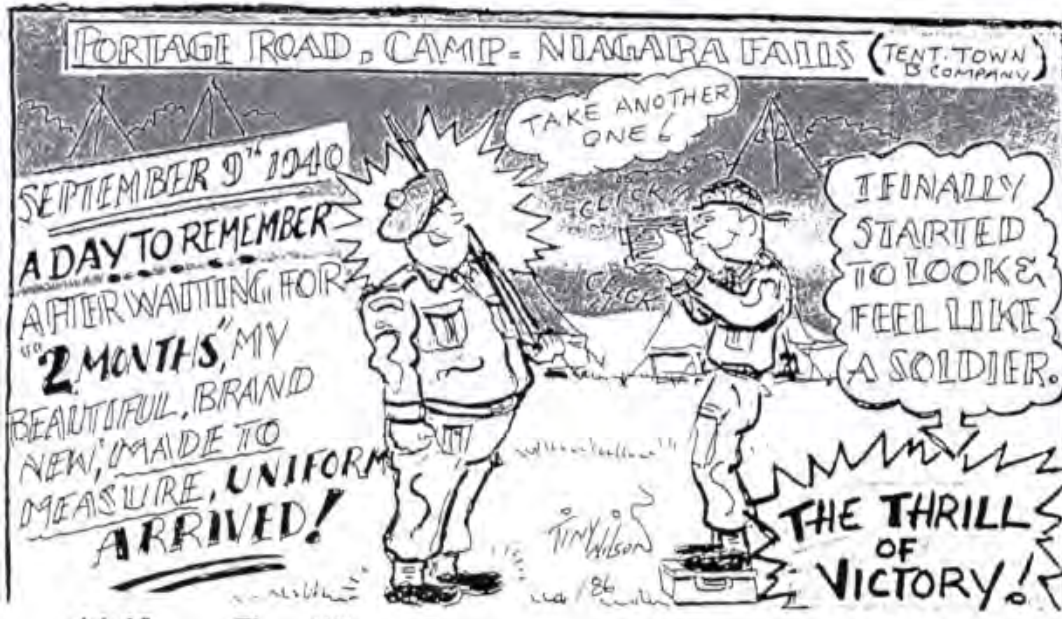 PORTAGE ROAD, CAMP = NIAGARA FALLS (TENT. TOWN
B COMPANY)
SEPTEMBER 9TH 1940
A DAY TO REMEMBER
AFTER WAITING FOR
"2 MONTHS," MY
BEAUTIFUL, BRAND
NEW, MADE TO
MEASURE, UNIFORM
ARRIVED!
TAKE ANOTHER
ONE!
CLICK
CLICK
I FINALLY
STARTED
TO LOOK &
FEEL LIKE
A SOLDIER.
THE THRILL
OF
VICTORY!
TINY WILSON
/86